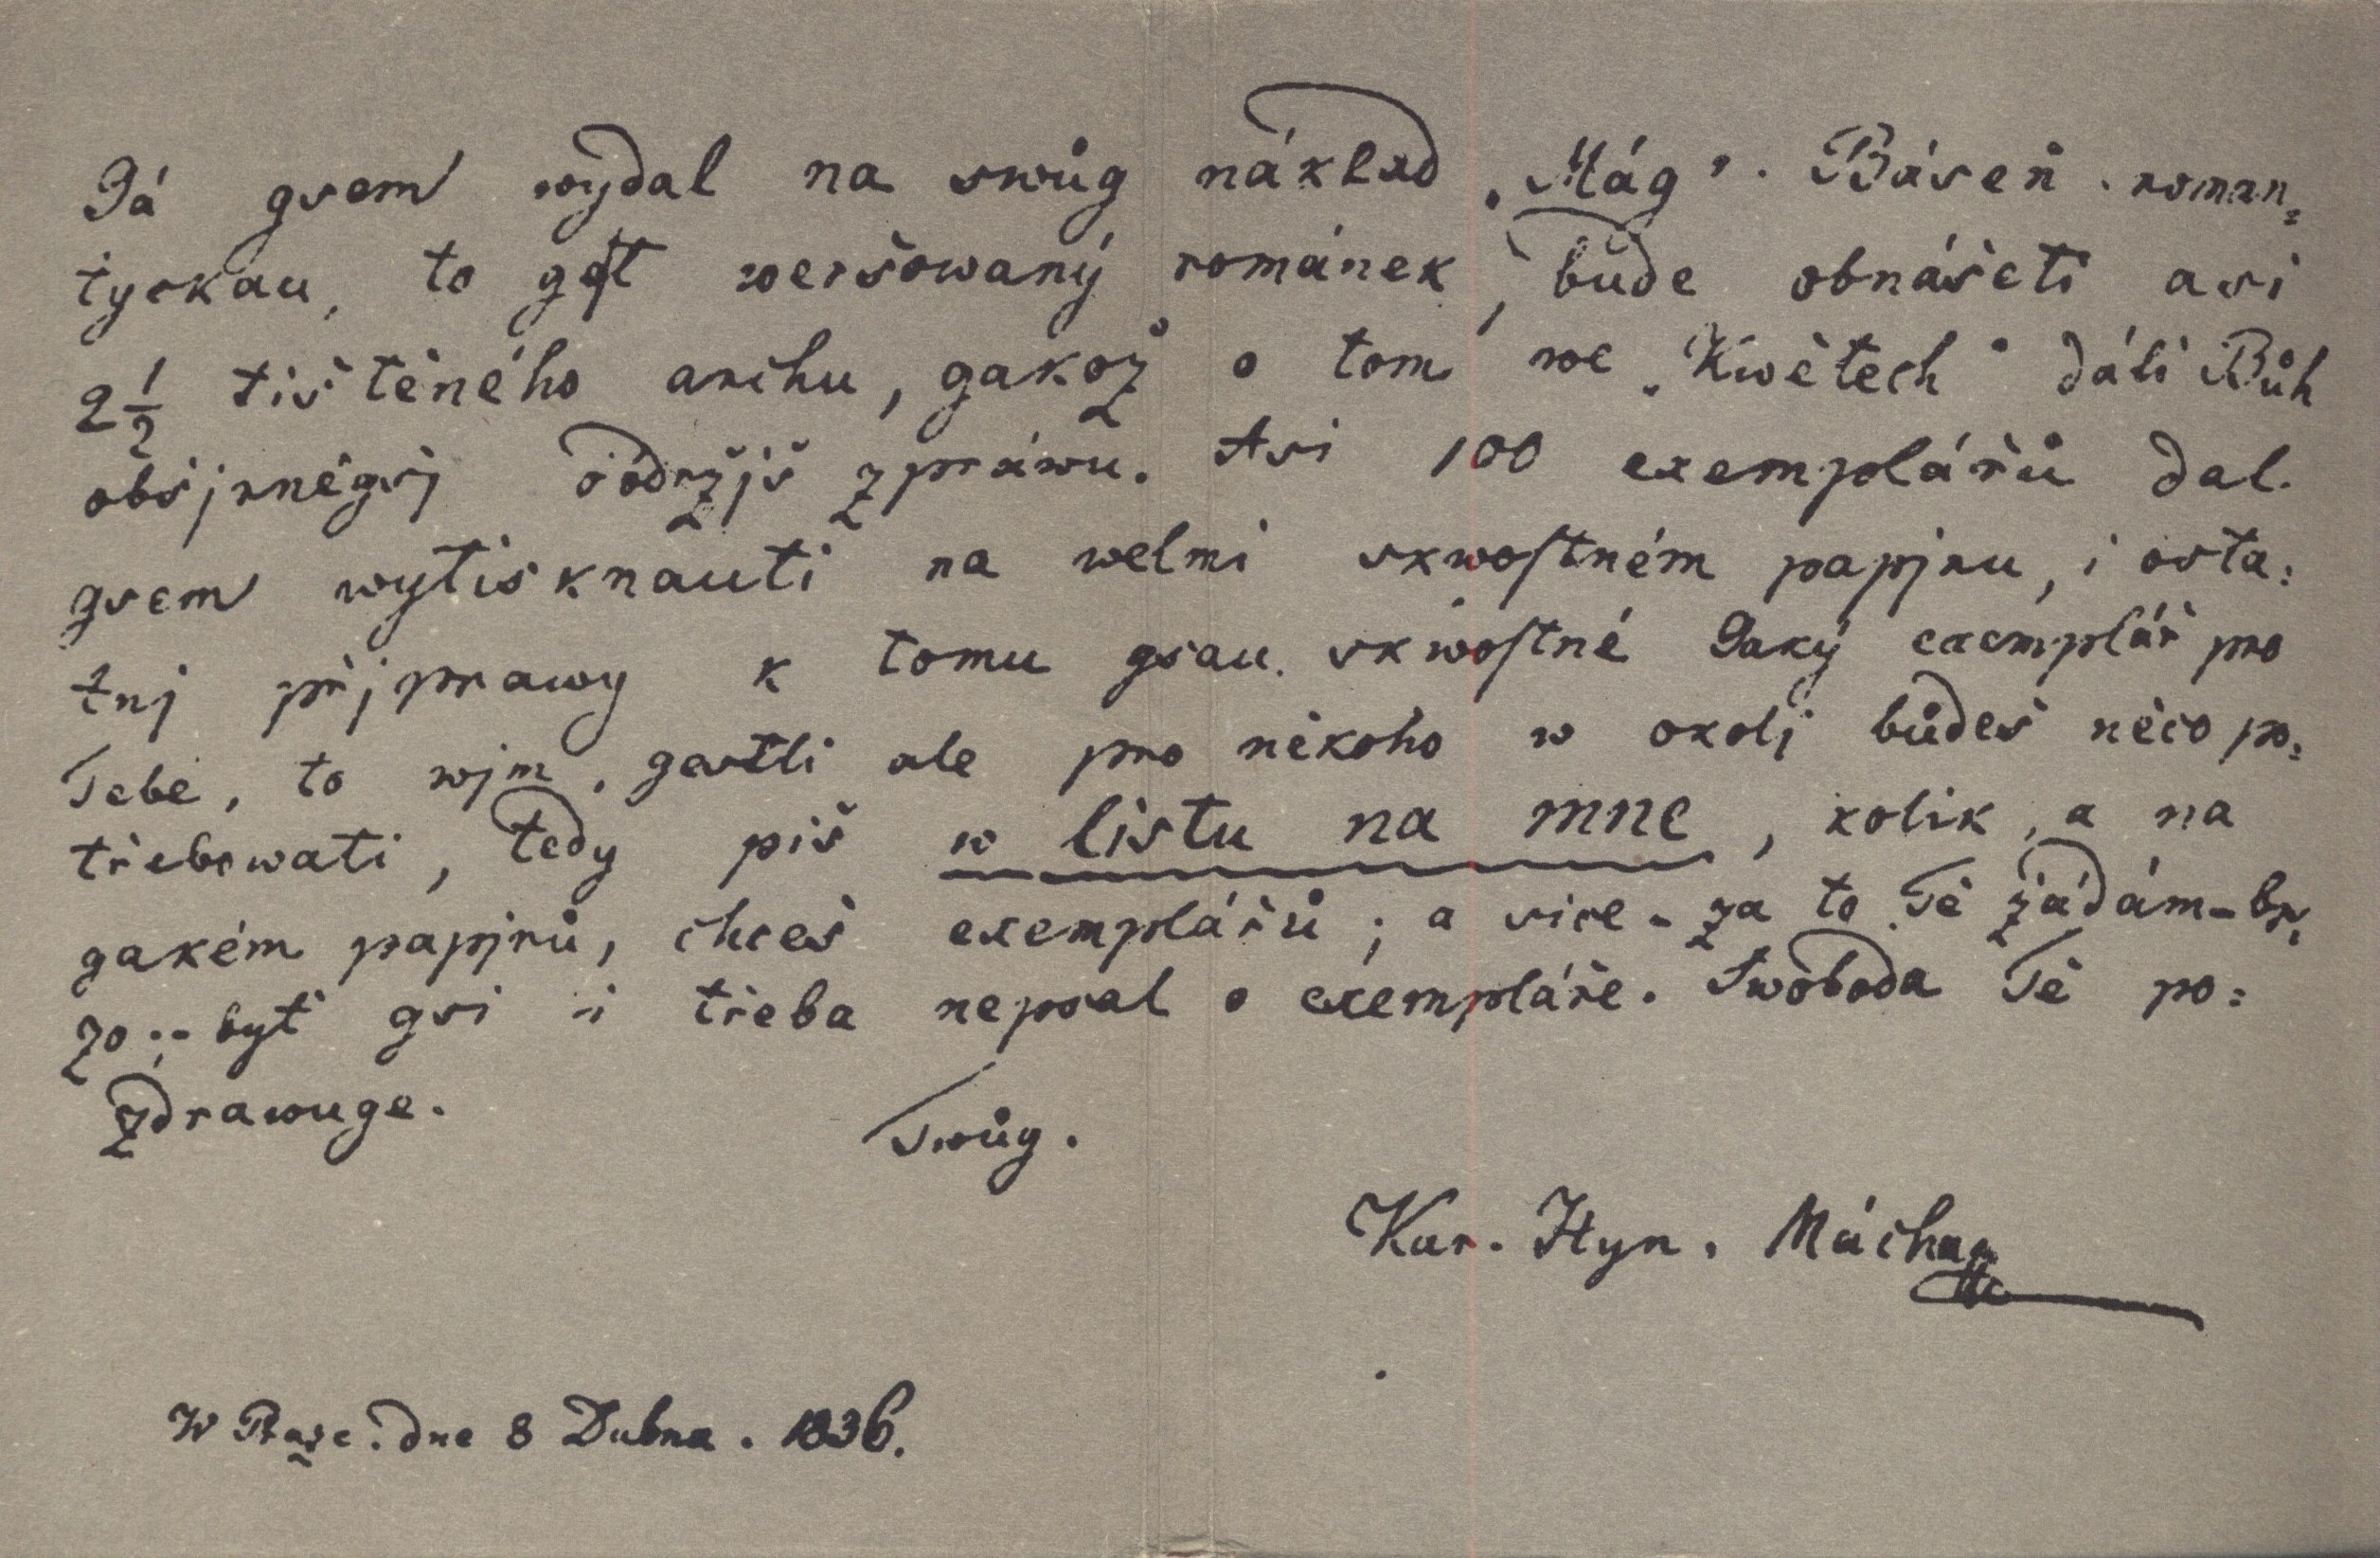 Gá gsem wydal na swůg náklad „Mág". Báseň roman„
tyckau, to gest weršowaný románek, bude obnášeti asi
2 1/2 tištěného archu, gakož o tom we „Kwětech" dáli Bůh
obšjrněgšj obdržjš zpráwu. Asi 100 exemplářů dal
gsem wytisknauti na welmi skwostném papjru, i osta:
tnj přjprawy k tomu gsau skwostné Gaký exemplář pro
Tebe, to wjm, gestli ale pro někoho w okolj budeš něco po:
třebowati, tedy piš w listu na mne, kolik, a na
gakém papjru, chceš exemplářů; a sice - za to Tě žádám - br,
zo :- byť gsi i třeba nepsal o exempláře. Swoboda Tě po:
zdrawuge.
Twůg.
Kar. Hyn. Mácha
W Praze. dne 8 Dubna. 1836.